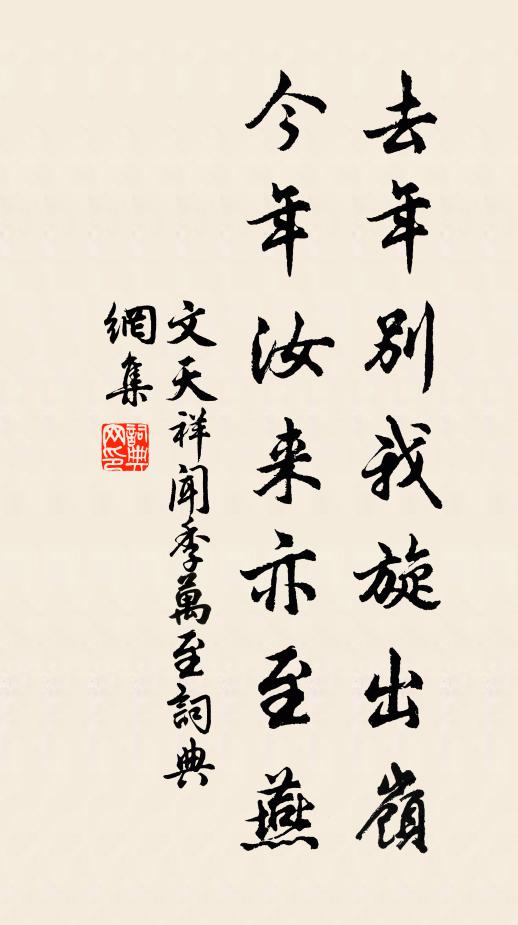 去年別我旋出嶺
今年汝来亦至燕
文天祥聞季萬至詞典
網集
詞典网印